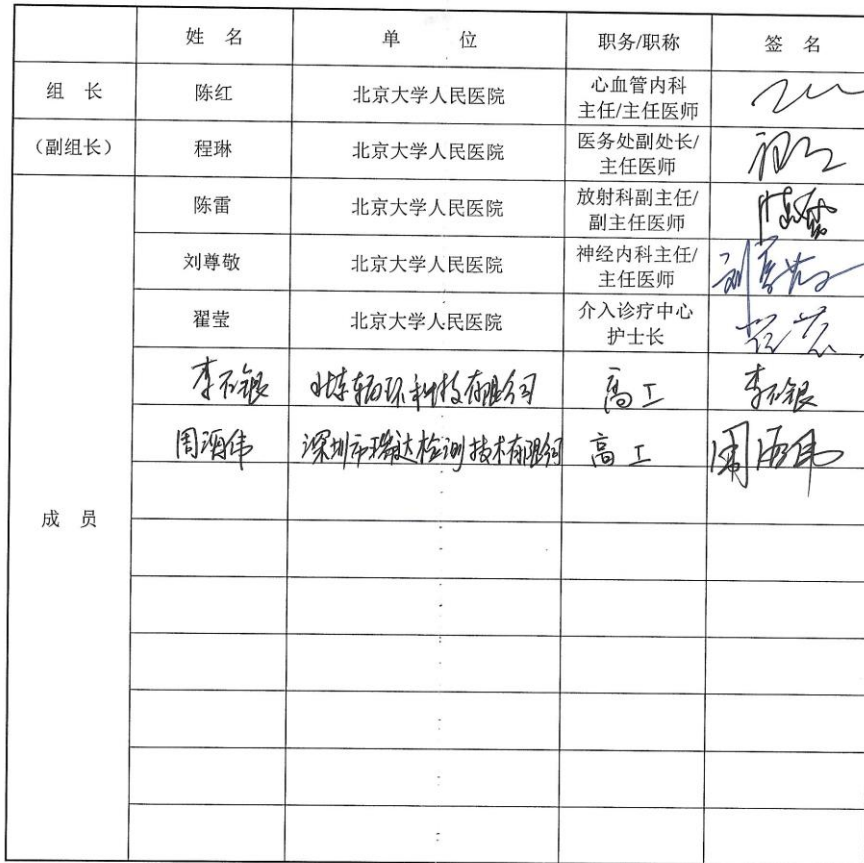 姓 名 单 位 职务/职称 签 名
组 长 陈红 北京大学人民医院 心血管内科
主任/主任医师
（副组长） 程琳 北京大学人民医院 医务处副处长/
主任医师
陈雷 北京大学人民医院 放射科副主任/
副主任医师
刘尊敬 北京大学人民医院 神经内科主任/
主任医师
翟莹 北京大学人民医院 介入诊疗中心
护士长
高工
深圳市瑞达检测技术有限公司 高工
成 员